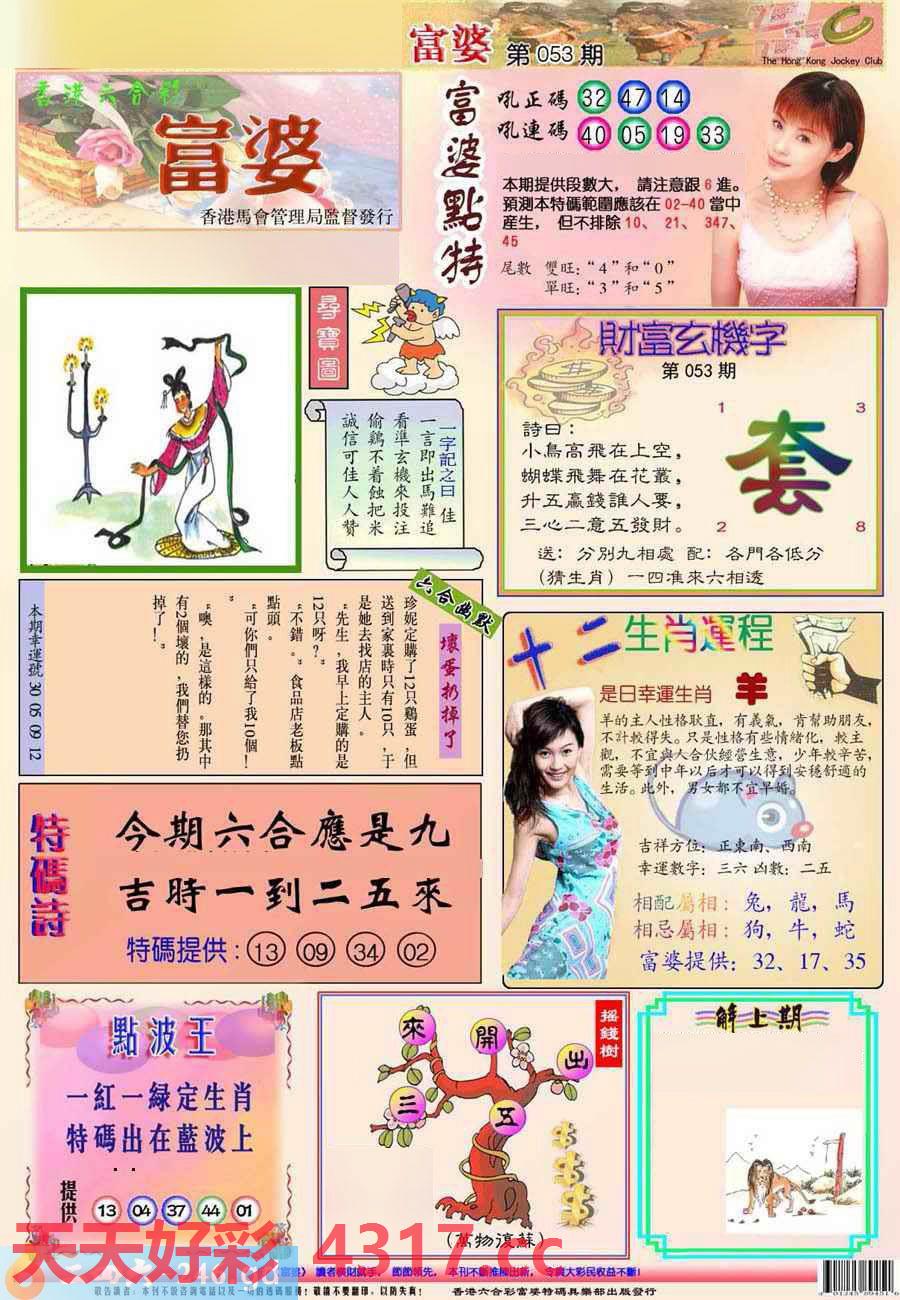 富婆 第 053 期
The Hong Kong Jockey Club
香港六合彩
富婆
香港馬會管理局監督發行
富婆點特
吼正碼 32 47 14
吼連碼 40 05 19 33
本期提供段數大， 請注意跟 6 進。
預測本特碼範圍應該在 02-40 當中
産生， 但不排除 10、 21、 347、
45
尾數 雙旺:“4”和“0”
單旺:“3”和“5”
尋寶圖
一字記之曰 佳
一言即出馬難追
看準玄機來投注
偷鷄不着蝕把米
誠信可佳人人贊
財富玄機字
第 053 期
詩曰:
小鳥高飛在上空，
蝴蝶飛舞在花叢，
升五贏錢誰人要，
三心二意五發財。
1
3
套
2
8
送: 分別九相處 配: 各門各低分
(猜生肖) 一四准來六相透
六合幽默
壞蛋扔掉了
珍妮定購了12只鷄蛋，但
送到家裏時只有10只，于
是她去找店的主人。
“先生，我早上定購的是
12只呀?”
“不錯。”食品店老板點
點頭。
“可你們只給了我10個!
”
“噢，是這樣的。那其中
有2個壞的，我們替您扔
掉了!”
本期幸運號 30 05 09 12
十二生肖運程
是日幸運生肖 羊
羊的主人性格耿直，有義氣，肯幫助朋友，
不計較得失。只是性格有些情緒化，較主
觀，不宜與人合伙經營生意，少年較辛苦，
需要等到中年以后才可以得到安穩舒適的
生活。此外，男女都不宜早婚。
吉祥方位: 正東南、西南
幸運數字: 三六 凶數: 二五
相配屬相: 兔，龍，馬
相忌屬相: 狗，牛，蛇
富婆提供: 32、17、35
特碼詩
今期六合應是九
吉時一到二五來
特碼提供: 13 09 34 02
點波王
一紅一緑定生肖
特碼出在藍波上
提供: 13 04 37 44 01
搖錢樹
來 開 出
三 五
(萬物復蘇)
解上期
天天好彩 4317.cc
富婆》 讀者橫財就手， 節節領先， 本刊不斷推陳出新， 令廣大彩民收益不斷!
敬請不要翻印，以防失真!
香港六合彩富婆特碼具樂部出版發行